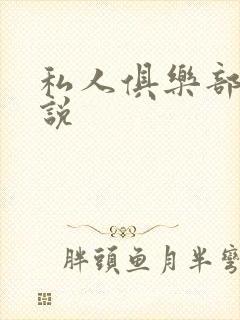 私人俱樂部
說
胖頭鱼月半彎